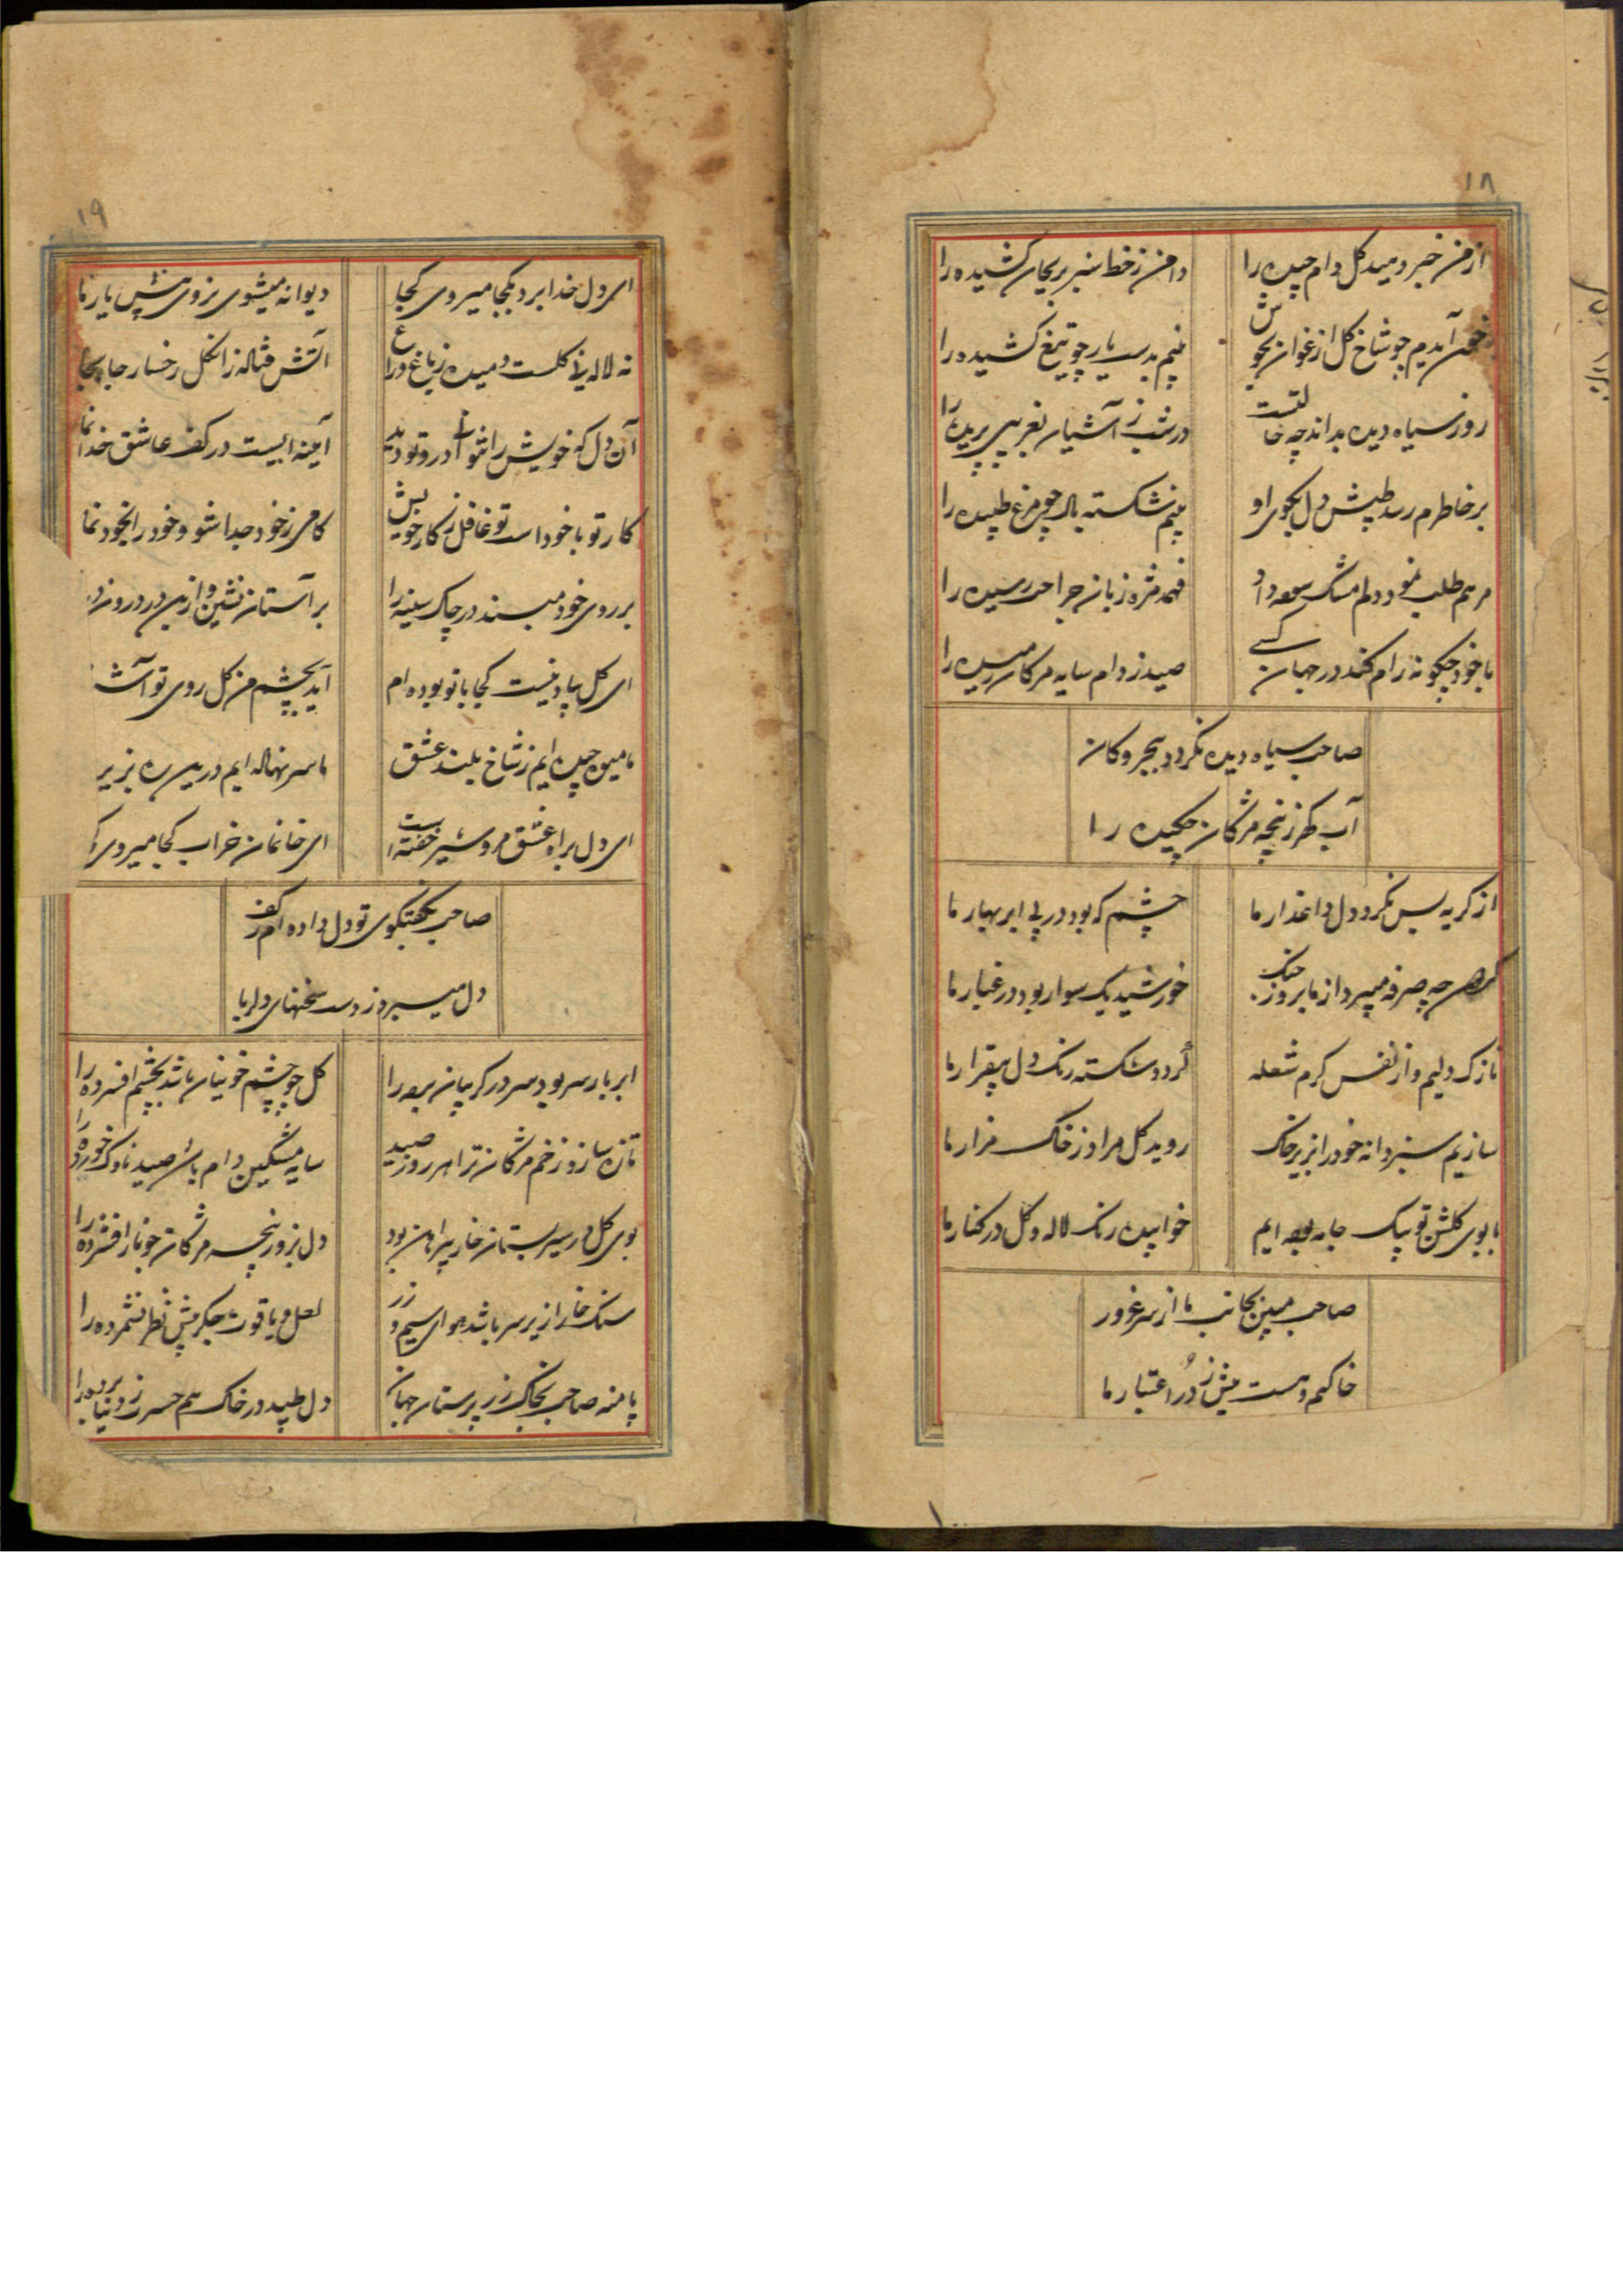 ۱۸
از من خبر دمید کل دام چیده را
دامن ز خط سبز بریحان کشیده را
آیدم چو شاخ کل ارغوان بجوش
بینم بدست یار چو تیغ کشیده را
روز سیاه دیده بداند چه حالتست
در شب ز آشیان بغریبی پریده را
بر خاطرم رسد طپش دل بکوی او
بینم شکسته بال چو مرغ طپیده را
مرهم طلب نمود دلم مشک سوده داد
فهمد مژه زبان جراحت رسیده را
با خود چکونه رام کند در جهان کسی
صید ز دام سایه مژکان رمیده را
صاحب سیاه دیده نکردد ببحر و کان
آب کهر ز پنجه مژکان چکیده را
از کریه بس نکرد دل داغدار ما
چشم که بود در پی ابر بهار ما
کردون چه صرفه میبرد از ما بروز جنک
خورشید یک سوار بود در غبار ما
نازک دلیم و از نفس کرم شعله
کردد شکسته رنک دل بیقرار ما
سازیم سبز دانه خود را بزیر خاک
روید کل مراد ز خاک مزار ما
با بوی کلشن تو بیک جامه بوده ایم
خوابیده رنک لاله و کل در کنار ما
صاحب مبین بجانب ما از سر غرور
خاکیم و هست بیش ز زر اعتبار ما
۱۹
ای دل خدا برد بکجا میروی کجا
دیوانه میشوی نروی پیش یار ما
نه لاله نی کلست دمیده ز باغ و راغ
آتش فتاده زان کل رخسار جا بجا
آن دل که خویش را نتواند درو تو دید
آیینه ایست در کف عاشق خدا نما
کار تو با خود است تو غافل ز کار خویش
کامی ز خود جدا شو و خود را بخود نما
بر روی خود مبند در چاک سینه را
بر آستان نشین و ازین در درون در
ای کل بیاد نیست کجا با تو بوده ام
آید بچشم من کل روی تو آشنا
ما میوه چیده ایم ز شاخ بلند عشق
ما سر نهاده ایم درین ره بزیر
ای دل براه عشق مرو شیر خفته است
ای خانمان خراب کجا میروی
صاحب بکفتکوی تو دل داده ام ز کف
دل میبرد ز دست سخنهای دلربا
ابر بارسر بود سر در کریبان برده را
کل چو چشم خونیان باشد بچشم افسرده را
تازه سازد زخم مژکان ترا هر روز صید
سایه مشکین دام باشد صید ناوک خورده را
بوی کل در سیر بستان خار پیراهن بود
دل بزور پنجه مژکان خونبار افشرده را
سنک خارا زیر سر باشد هوای سیم و زر
لعل و یاقوت جکر پیش نظر نشمرده را
پا منه صاحب بخاک زر پرستان جهان
دل طپید در خاک هم حسرت ز دنیا برده را